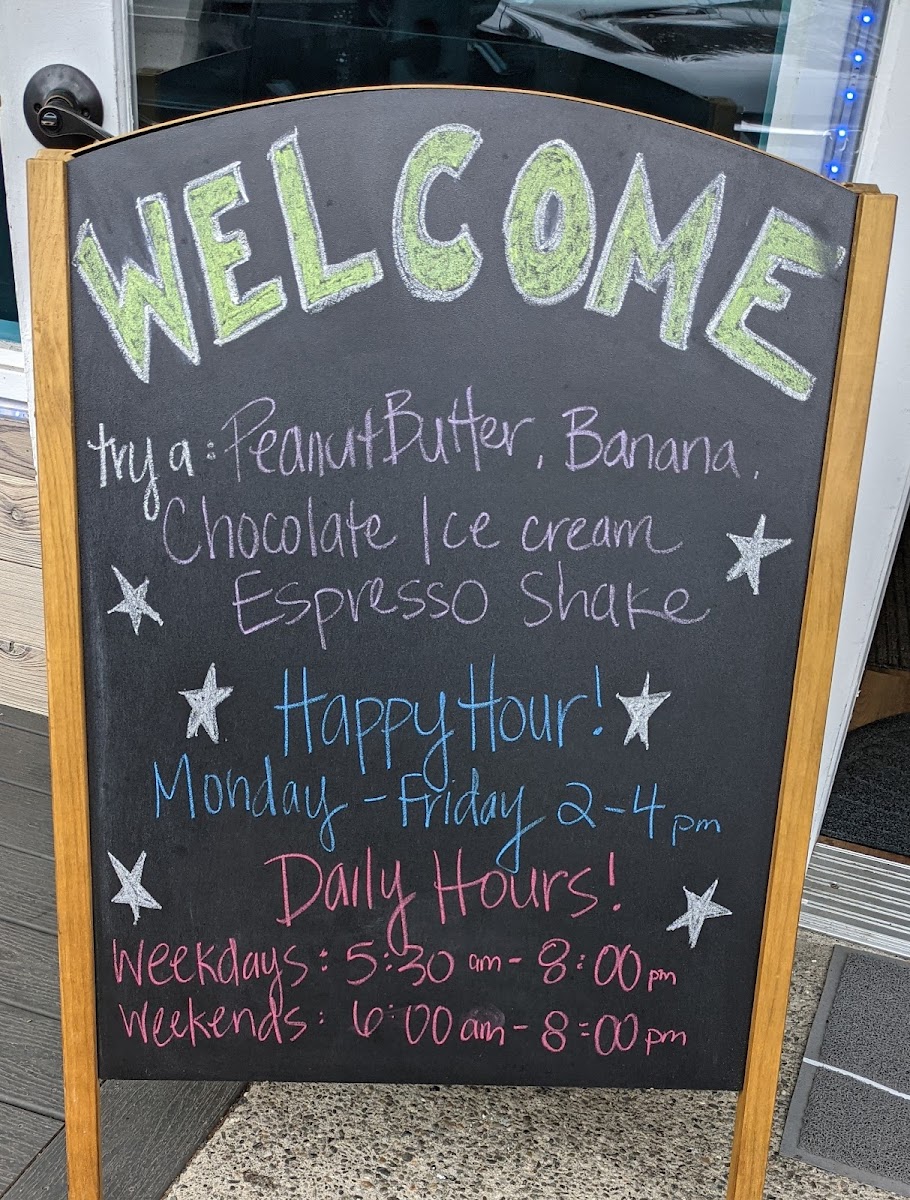 WELCOME
try a: Peanut Butter, Banana,
Chocolate Ice cream
Espresso Shake
Happy Hour!
Monday - Friday 2-4 pm
Daily Hours!
Weekdays: 5:30 am - 8:00 pm
Weekends: 6:00 am - 8:00 pm